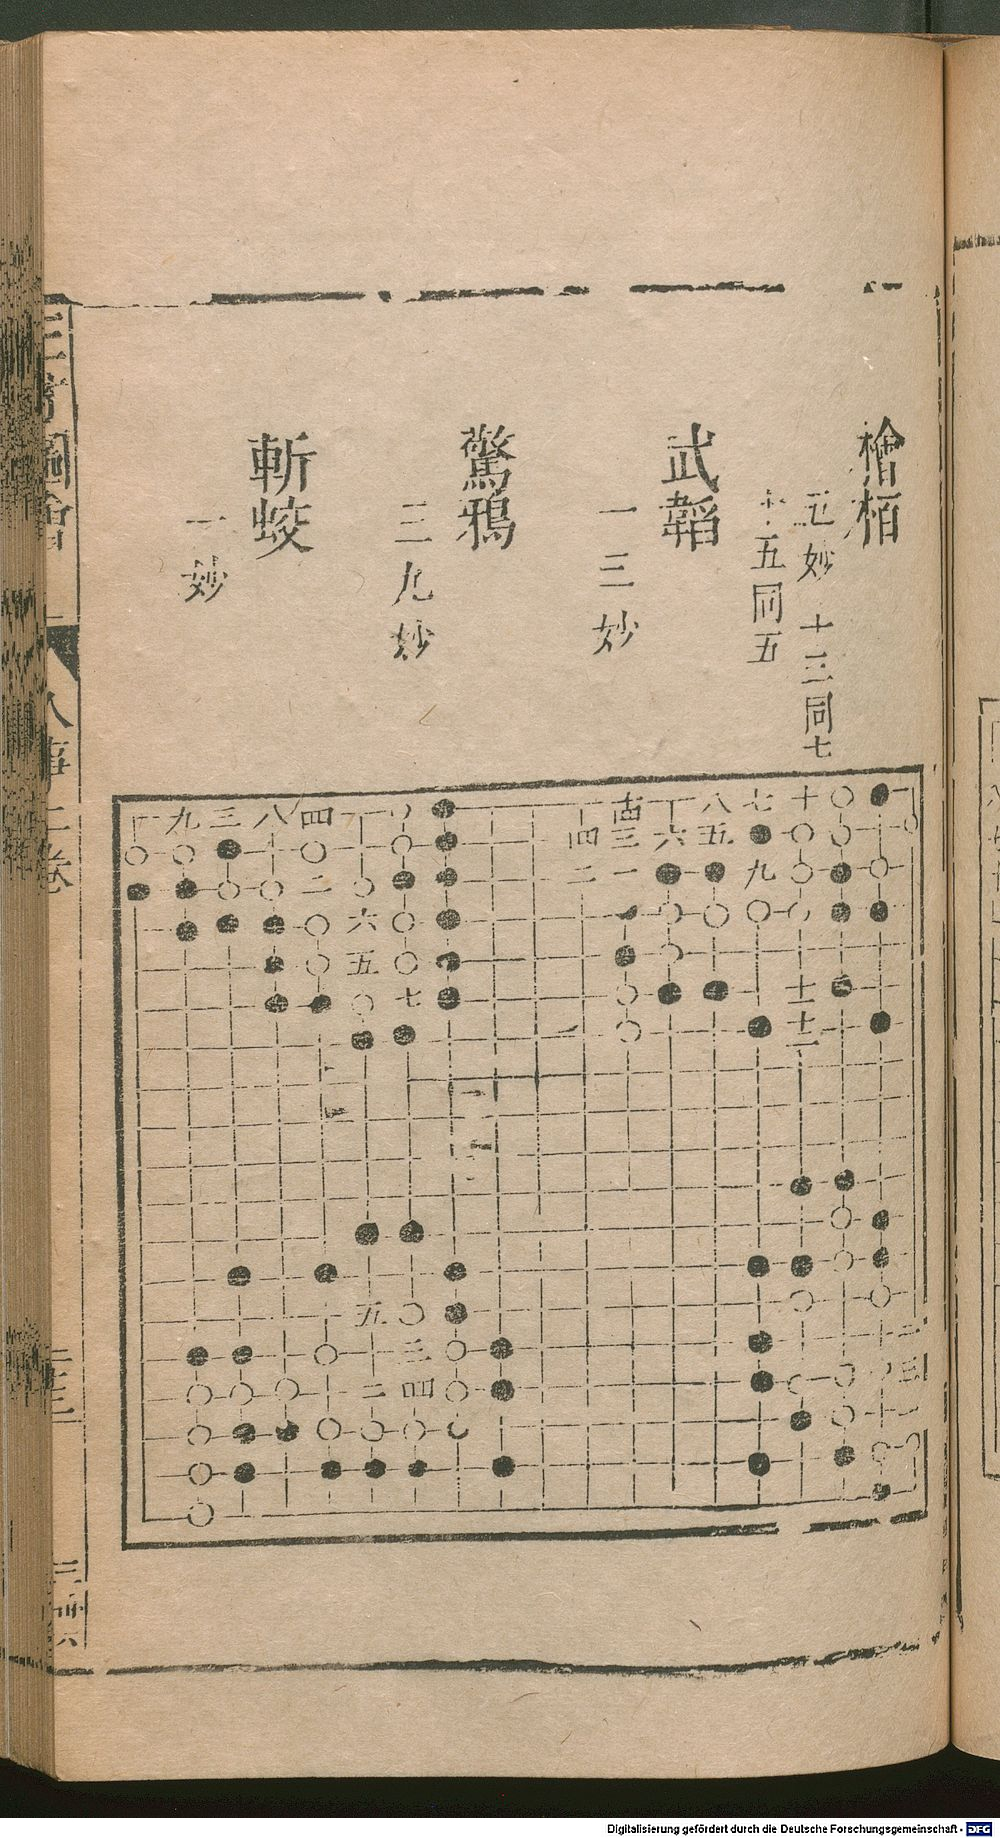 檜栢
五妙 十三同七
十五同五
武韜
一三妙
驚鴉
三九妙
斬蛟
一妙
九三八四一
二
六
五
七
十八七十
四三六五
二一九
十一
十二
五
三
二四
三
三才圖會
人事二卷
Digitalisierung gefördert durch die Deutsche Forschungsgemeinschaft - DFG